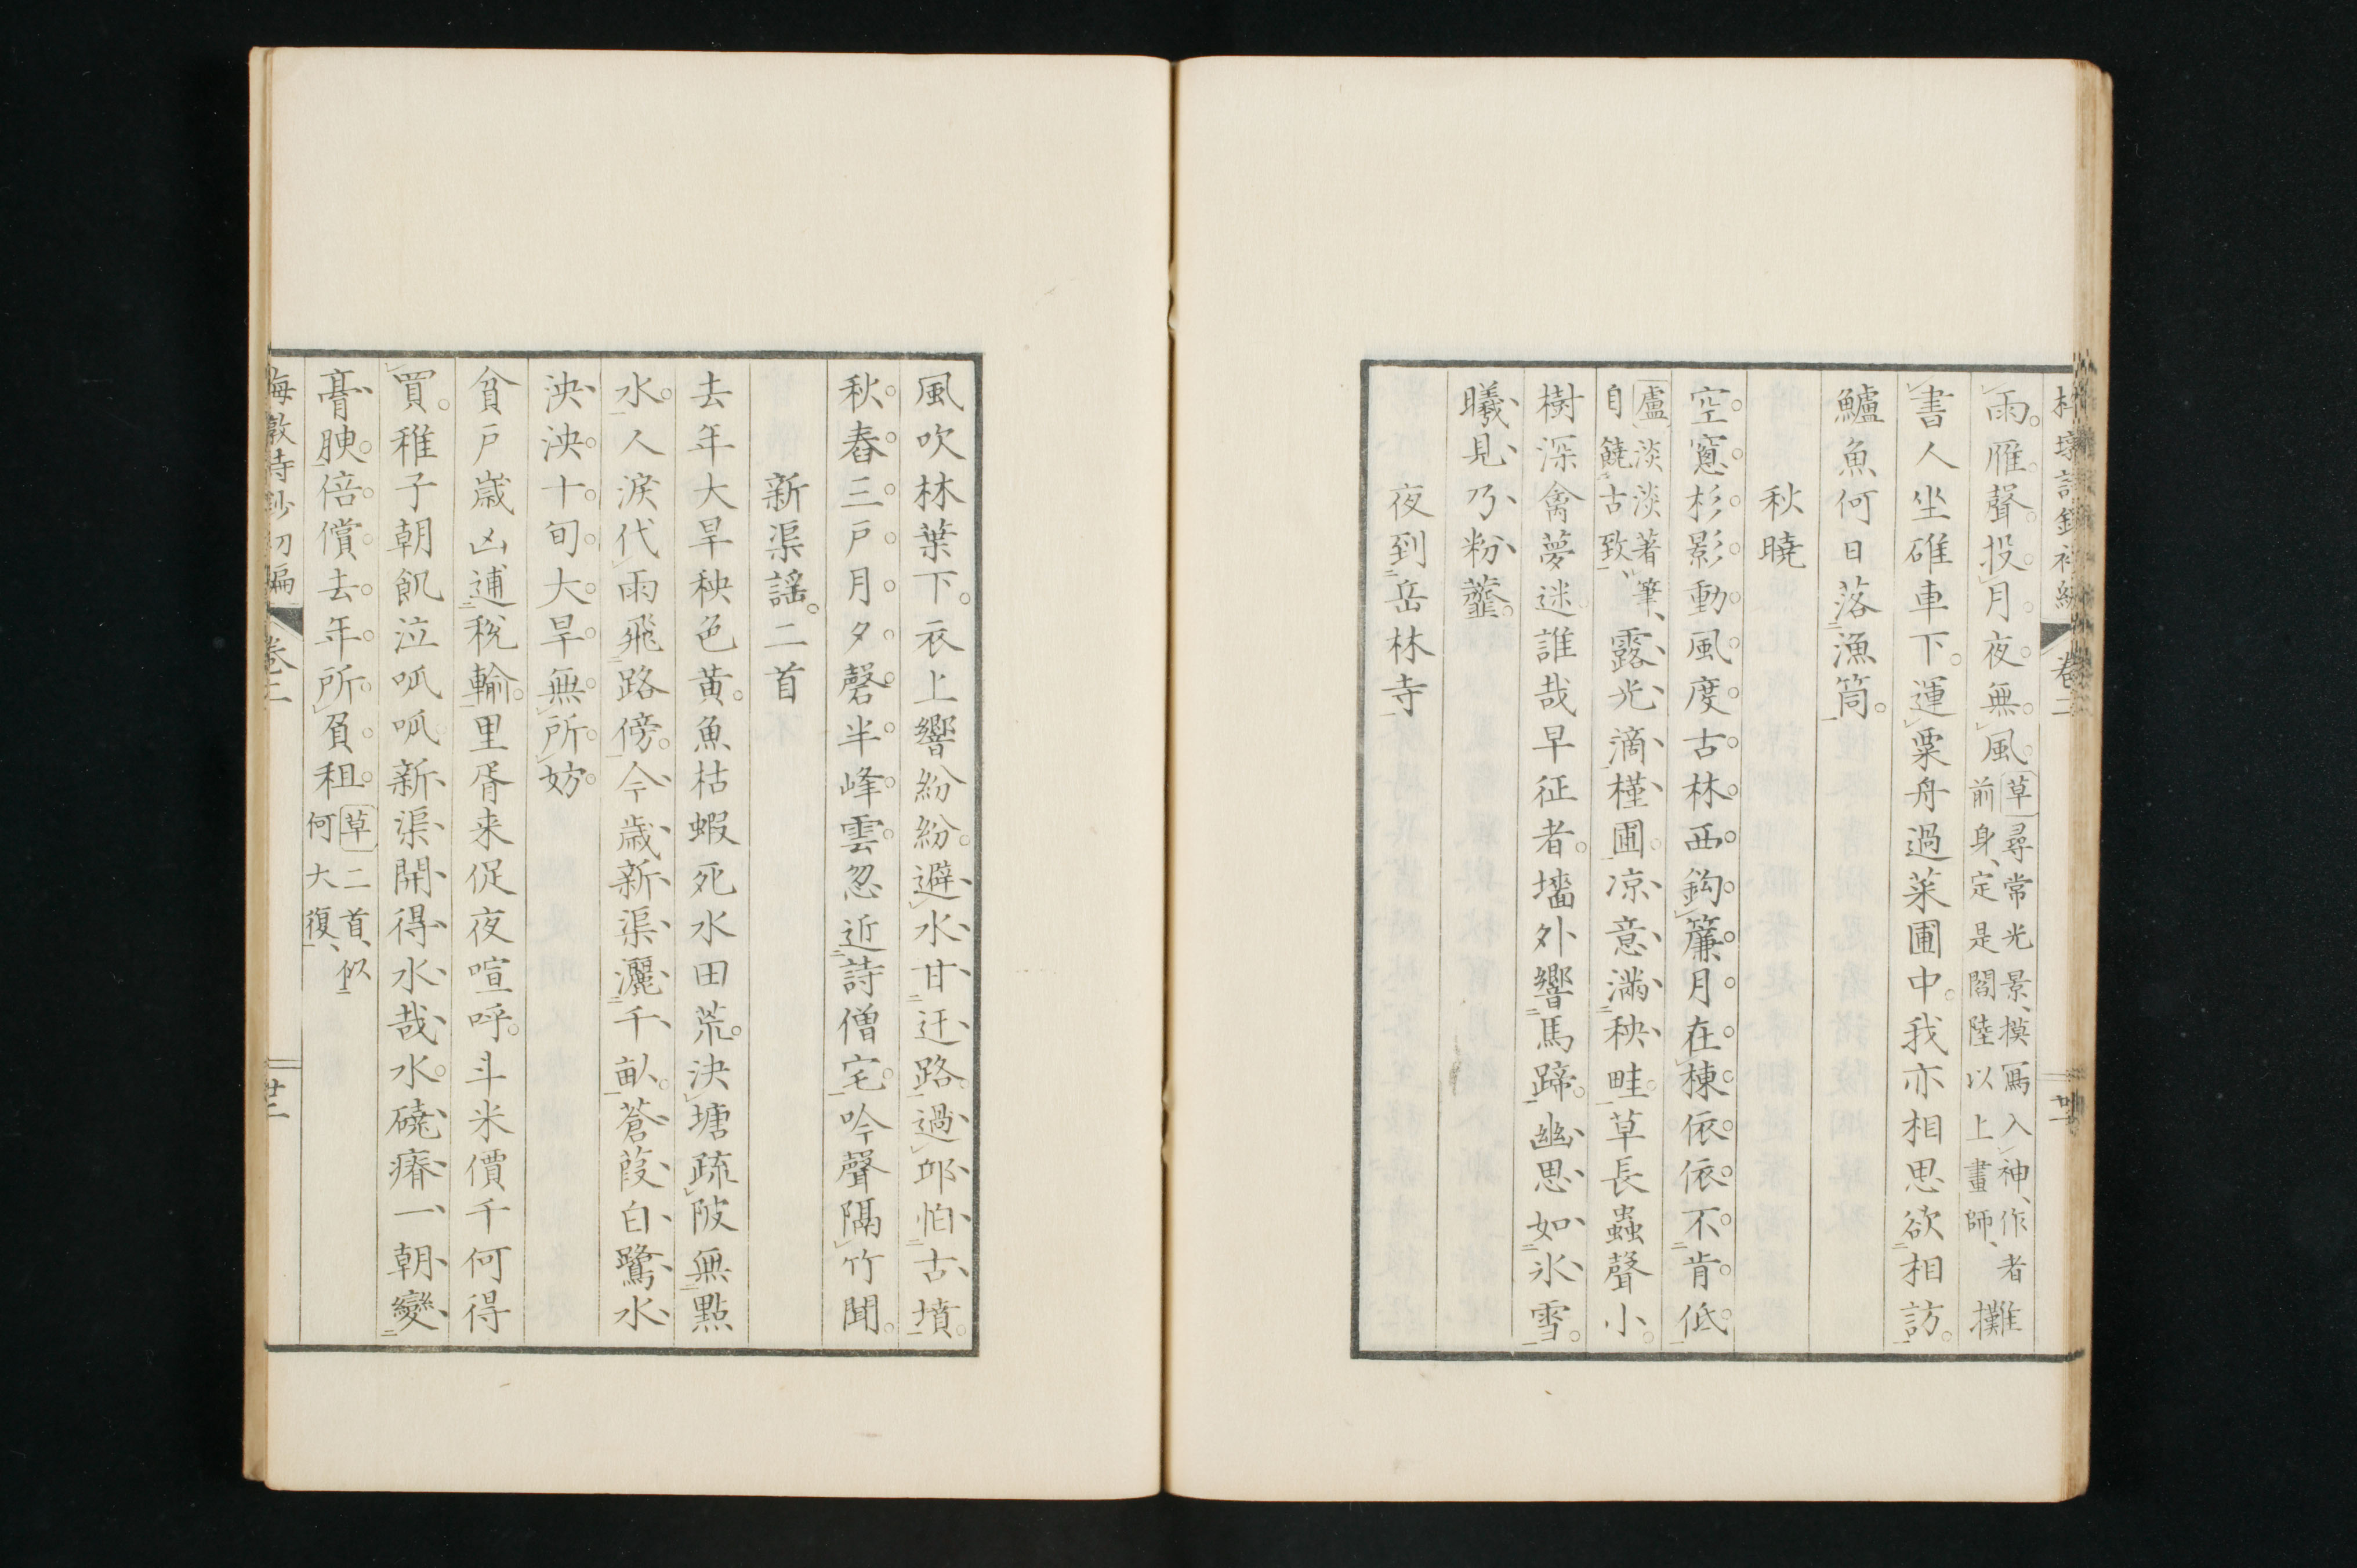 雨。雁聲投月夜無風。[草]尋常光景、摸寫入神、作者前身、定是閻陸以上畫師、攤
書人坐碓車下。運粟舟過菜圃中。我亦相思欲相訪。
鱸魚何日落漁筒。
秋曉
空窻杉影動風度古林西鈎簾月在棟依依不肯低
[盧]淡淡著筆、自饒古致、露光滴槿圃。凉意滿秧畦。草長蟲聲小。
樹深禽夢迷誰哉早征者。墻外響馬蹄。幽思如氷雪。
曦見乃粉虀。
夜到岳林寺
風吹林葉下。衣上響紛紛。避水甘迂路。過邱怕古墳。
秋舂三戶月夕磬半峰雲忽近詩僧宅。吟聲隔竹聞。
新渠謠。二首
去年大旱秧色黃。魚枯蝦死水田荒。決塘疏陂無點
水。人淚代雨飛路傍。今歲新渠灑千畝。蒼葭白鷺水
泱泱十旬大旱無所妨
貧戶歲凶逋稅輸。里胥来促夜喧呼。斗米價千何得
買。稚子朝飢泣呱呱新渠開得水哉水磽瘠一朝變
膏腴。倍償去年所負租[草]二首、似何大復、
梅墩詩鈔初編 卷二 廿二